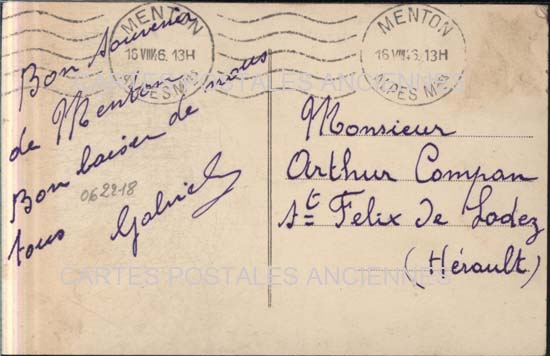 MENTON
16 VIII 46. 13H
ALPES Mmes
MENTON
16 VIII 46. 13H
ALPES Mmes
Bon Souvenir
de Menton
Bon baiser de nous
tous Gabriel
062218
Monsieur
Arthur Compan
St Felix de Lodez
(Hérault)
CARTES POSTALES ANCIENNES
CARTES POSTALES ANCIENNES